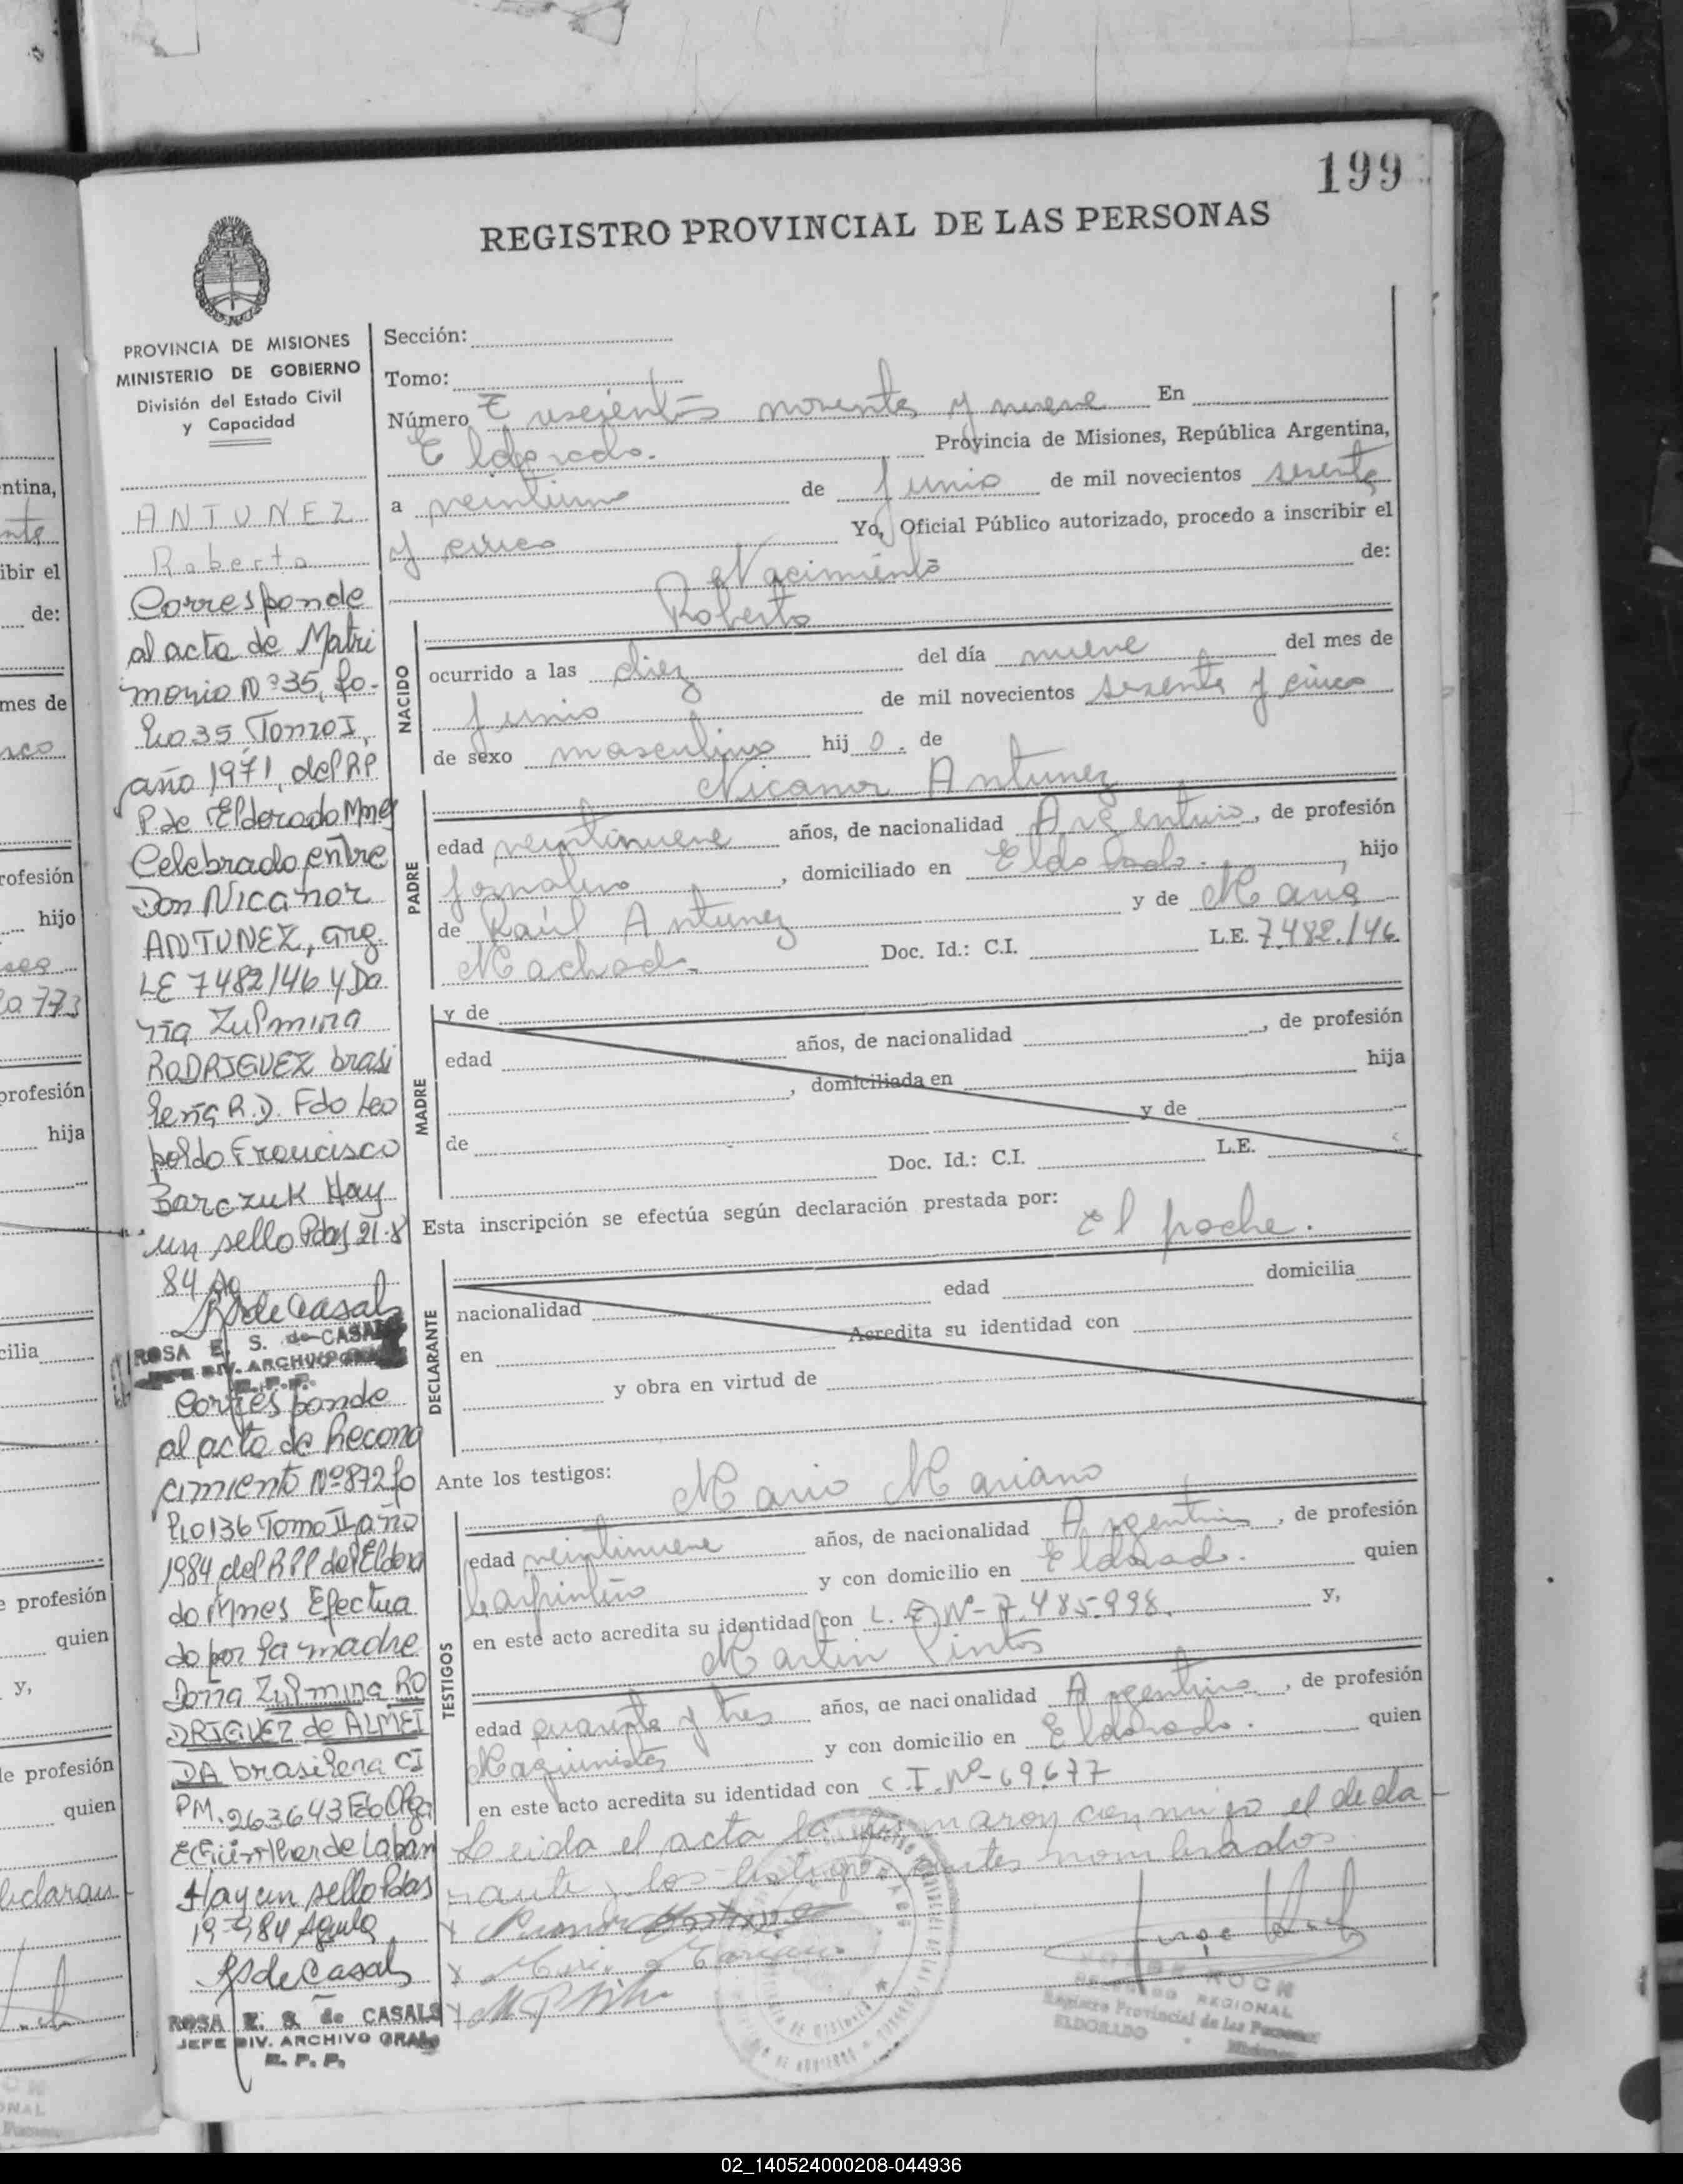 199
REGISTRO PROVINCIAL DE LAS PERSONAS
PROVINCIA DE MISIONES
MINISTERIO DE GOBIERNO
División del Estado Civil
y Capacidad
ANTUNEZ
Roberto
Corresponde
al acta de Matri
monio Nº 35, fo-
lio 35 Tomo I,
año 1971, del RP
P. de Eldorado Mnes
Celebrado entre
Don Nicanor
ANTUNEZ, arg.
LE 7482146 y Do
ña Zulmira
RODRIGUEZ brasi
leña R.D. Fdo Leo
poldo Francisco
Barczuk Hay
un sello Pdas 21-8
84
RSdeCasals
ROSA E. S. de CASALS
JEFE DIV. ARCHIVO GRAL
R.P.P.
Corresponde
al acta de Recono
cimiento Nº 872 fo
lio 136 Tomo II año
1984 del RPP del Eldora
do Mnes Efectua
do por la madre
Doña Zulmira RO
DRIGUEZ de ALMEI
DA brasileña CI
PM. 263643 Fdo Olga
Hay un sello Pdas
RSdeCasals
ROSA E. S. de CASALS
JEFE DIV. ARCHIVO GRAL
R. P. P.
Sección:
Tomo:
Número Trescientos noventa y nueve En
Eldorado. Provincia de Misiones, República Argentina,
a veintiuno de Junio de mil novecientos sesenta
y cinco Yo, Oficial Público autorizado, procedo a inscribir el
Nacimiento de:
Roberto
NACIDO
ocurrido a las diez del día nueve del mes de
Junio de mil novecientos sesenta y cinco
de sexo masculino hijo. de
Nicanor Antunez
PADRE
edad veintinueve años, de nacionalidad Argentino, de profesión
Jornalero, domiciliado en Eldorado., hijo
de Raúl Antunez y de María
Machado. Doc. Id.: C.I. L.E. 7.482.146
MADRE
y de
edad años, de nacionalidad, de profesión
, domiciliada en hija
de y de
Doc. Id.: C.I. L.E.
Esta inscripción se efectúa según declaración prestada por:
El padre.
DECLARANTE
nacionalidad edad domicilia
en Acredita su identidad con
y obra en virtud de
Ante los testigos:
Mario Mariano
TESTIGOS
edad veintinueve años, de nacionalidad Argentino, de profesión
Carpintero y con domicilio en Eldorado. quien
en este acto acredita su identidad con L. E. Nº- 7.485.998. y,
Martin Pintos
edad cuarenta y tres años, de nacionalidad Argentino, de profesión
Maquinista y con domicilio en Eldorado. quien
en este acto acredita su identidad con C.I. Nº- 69.677
Leida el acta la firmaron conmigo el decla
rante y los testigos antes nombrados.
REGIONAL
Registro Provincial de las Personas
ELDORADO Misiones
ntina,
ibir el
de:
mes de
rofesión
hijo
profesión
hija
cilia
e profesión
quien
y,
le profesión
quien
02_140524000208-044936